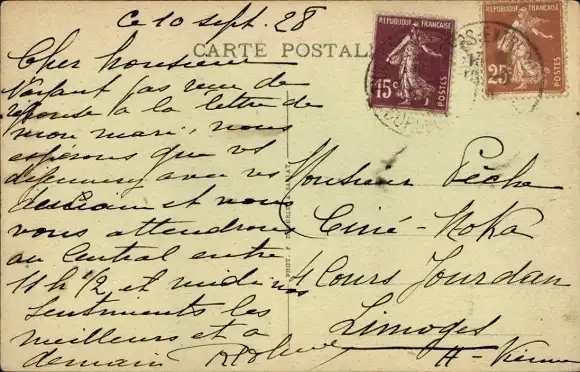 Ce 10 sept. 28
CARTE POSTALE
REPUBLIQUE FRANÇAISE
15c
POSTES
REPUBLIQUE FRANÇAISE
25c
POSTES
Cher Monsieur
N'ayant pas reçu de
réponse a la lettre de
mon mari, nous
espérons que vs
déjeunez avec vs
et vous
vous attendrons
au Central entre
11 h 1/2 et midi nos
sentiments les
meilleurs et a
demain
Monsieur Pêche
Ciné-Moka
4 Cours Jourdan
Limoges
Hte-Vienne